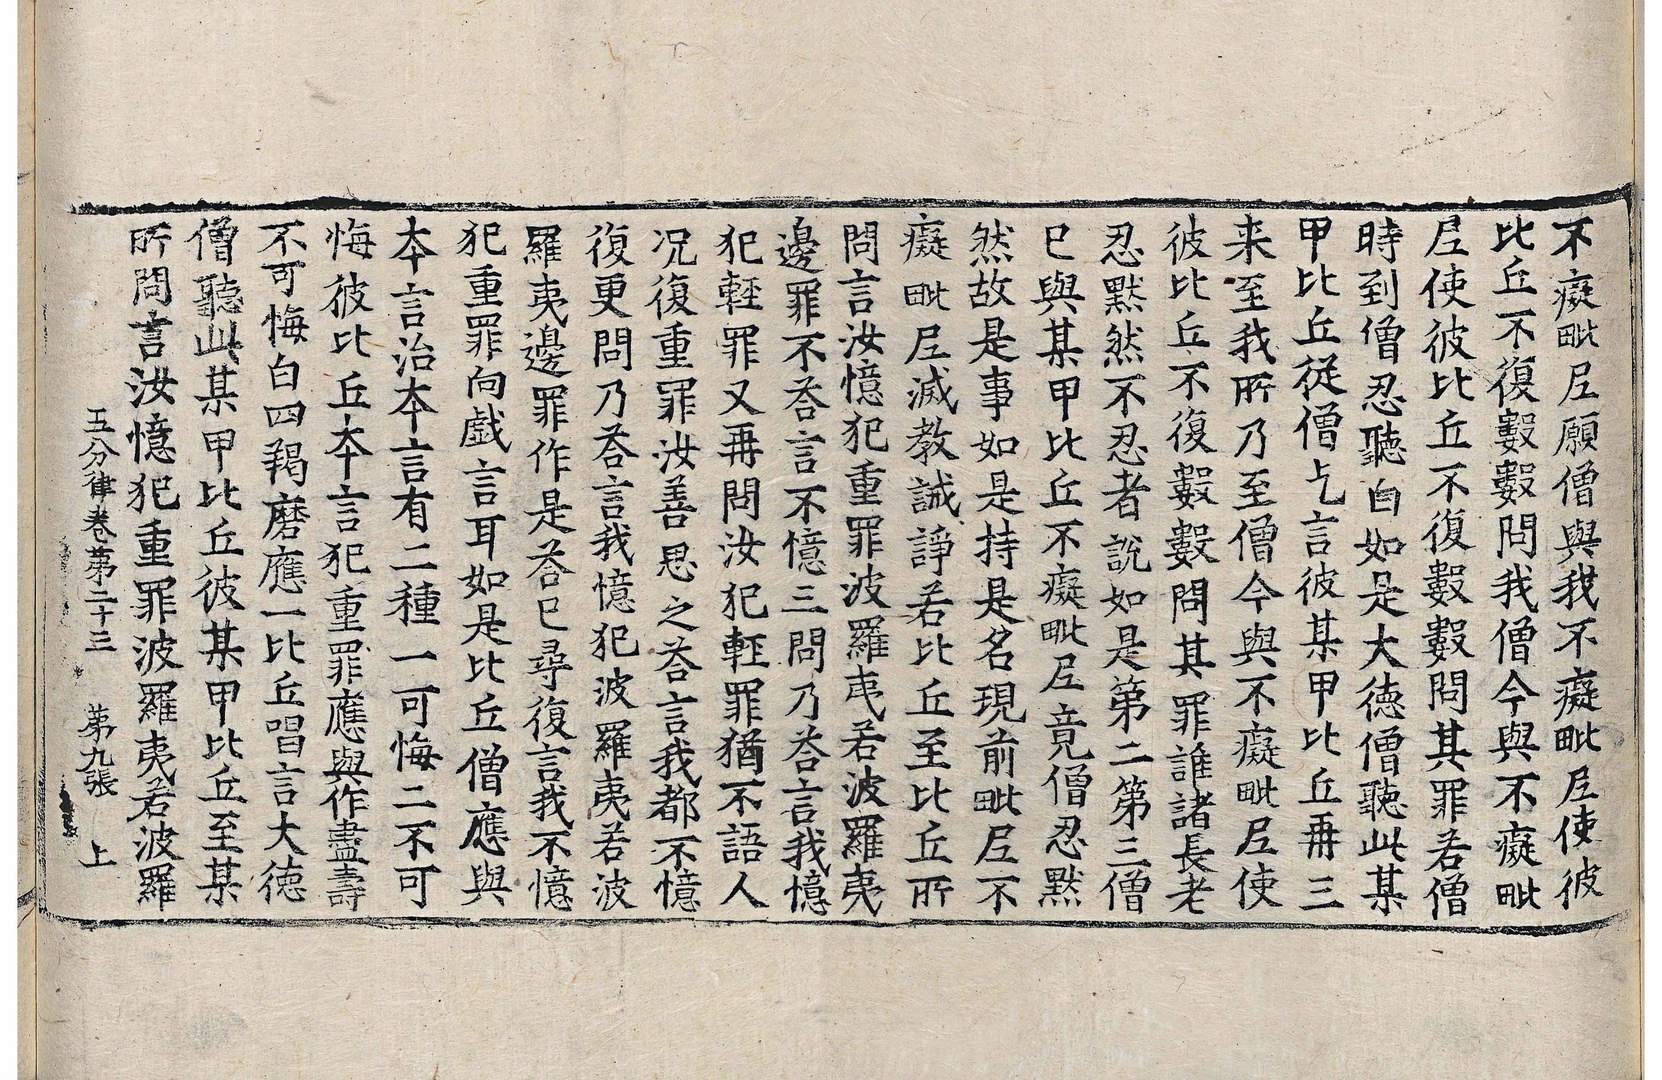 不癡毗尼願僧與我不癡毗尼使彼
比丘不復數數問我僧今與不癡毗
尼使彼比丘不復數數問其罪若僧
時到僧忍聽白如是大德僧聽此某
甲比丘從僧乞言彼某甲比丘再三
来至我所乃至僧今與不癡毗尼使
彼比丘不復數數問其罪誰諸長老
忍默然不忍者說如是第二第三僧
已與某甲比丘不癡毗尼竟僧忍默
然故是事如是持是名現前毗尼不
癡毗尼滅教誡諍若比丘至比丘所
問言汝憶犯重罪波羅夷若波羅夷
邊罪不荅言不憶三問乃荅言我憶
犯輕罪又再問汝犯輕罪猶不語人
况復重罪汝善思之荅言我都不憶
復更問乃荅言我憶犯波羅夷若波
羅夷邊罪作是荅已尋復言我不憶
犯重罪向戲言耳如是比丘僧應與
本言治本言有二種一可悔二不可
悔彼比丘本言犯重罪應與作盡壽
不可悔白四羯磨應一比丘唱言大德
僧聽此某甲比丘彼某甲比丘至某
所問言汝憶犯重罪波羅夷若波羅
五分律卷第二十三 第九張 上